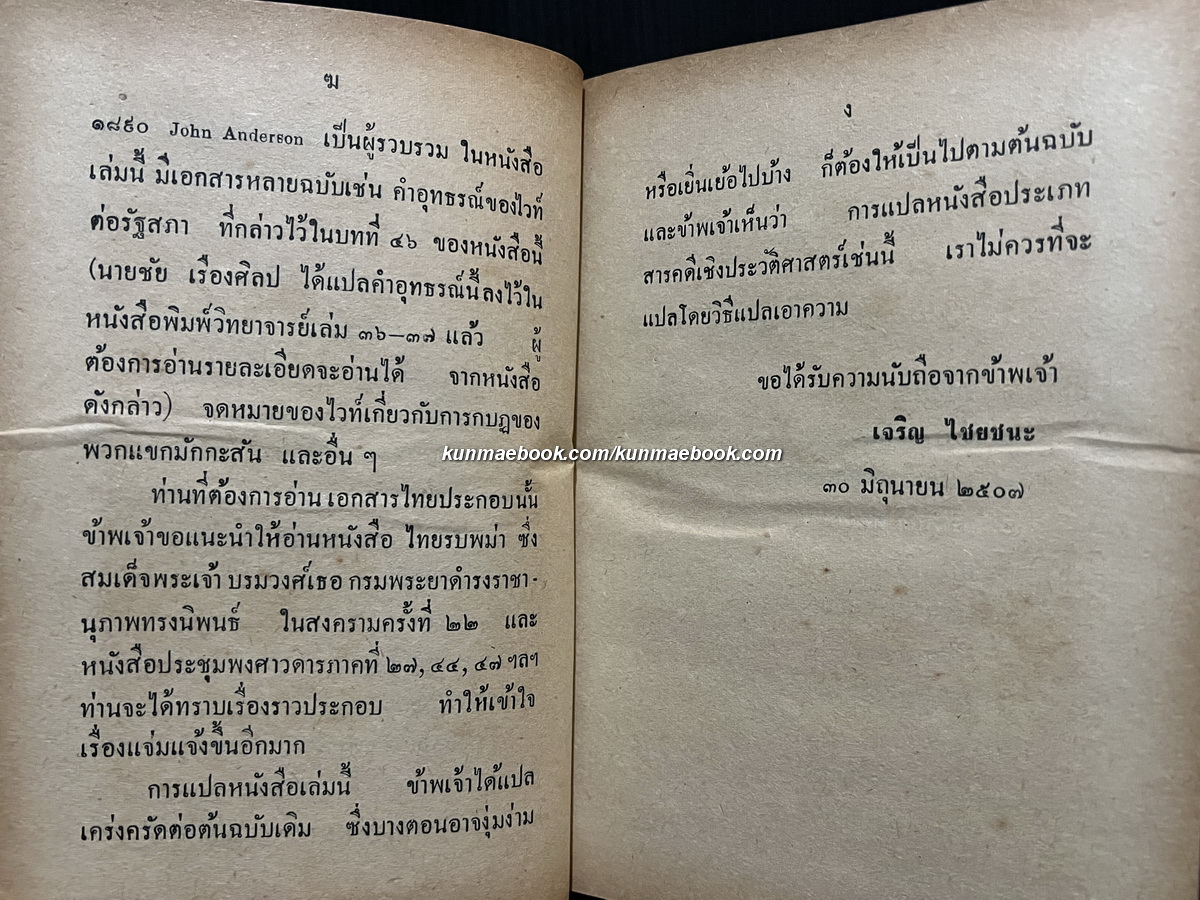 ฆ
๑๘๙๐ John Anderson เป็นผู้รวบรวม ในหนังสือ
เล่มนี้ มีเอกสารหลายฉบับเช่น คำอุทธรณ์ของไวท์
ต่อรัฐสภา ที่กล่าวไว้ในบทที่ ๔๖ ของหนังสือนี้
(นายชัย เรืองศิลป ได้แปลคำอุทธรณ์นี้ลงไว้ใน
หนังสือพิมพ์วิทยาจารย์เล่ม ๓๖—๓๗ แล้ว ผู้
ต้องการอ่านรายละเอียดจะอ่านได้ จากหนังสือ
ดังกล่าว) จดหมายของไวท์เกี่ยวกับการกบฎของ
พวกแขกมักกะสัน และอื่น ๆ
ท่านที่ต้องการอ่าน เอกสารไทยประกอบนั้น
ข้าพเจ้าขอแนะนำให้อ่านหนังสือ ไทยรบพม่า ซึ่ง
สมเด็จพระเจ้า บรมวงศ์เธอ กรมพระยาดำรงราชา-
นุภาพทรงนิพนธ์ ในสงครามครั้งที่ ๒๒ และ
หนังสือประชุมพงศาวดารภาคที่ ๒๗, ๔๔, ๔๗ ฯลฯ
ท่านจะได้ทราบเรื่องราวประกอบ ทำให้เข้าใจ
เรื่องแจ่มแจ้งขึ้นอีกมาก
การแปลหนังสือเล่มนี้ ข้าพเจ้าได้แปล
เคร่งครัดต่อต้นฉบับเดิม ซึ่งบางตอนอาจงุ่มง่าม
ง
หรือเยิ่นเย้อไปบ้าง ก็ต้องให้เป็นไปตามต้นฉบับ
และข้าพเจ้าเห็นว่า การแปลหนังสือประเภท
สารคดีเชิงประวัติศาสตร์เช่นนี้ เราไม่ควรที่จะ
แปลโดยวิธีแปลเอาความ
ขอได้รับความนับถือจากข้าพเจ้า
เจริญ ไชยชนะ
๓๐ มิถุนายน ๒๕๐๗
kunmaebook.com/kunmaebook.com